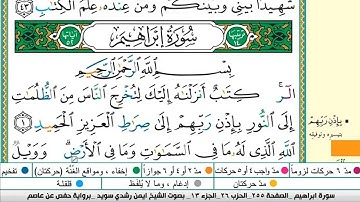 شَهِيدًۢا بَيْنِي وَبَيْنَكُمْ وَمَنْ عِندَهُۥ عِلْمُ ٱلْكِتَٰبِ ٤٣
سُورَةُ إِبْرَاهِيمَ
بِسْمِ ٱللَّهِ ٱلرَّحْمَٰنِ ٱلرَّحِيمِ
الٓر ۚ كِتَٰبٌ أَنزَلْنَٰهُ إِلَيْكَ لِتُخْرِجَ ٱلنَّاسَ مِنَ ٱلظُّلُمَٰتِ
إِلَى ٱلنُّورِ بِإِذْنِ رَبِّهِمْ إِلَىٰ صِرَٰطِ ٱلْعَزِيزِ ٱلْحَمِيدِ ١
ٱللَّهِ ٱلَّذِي لَهُۥ مَا فِي ٱلسَّمَٰوَٰتِ وَمَا فِي ٱلْأَرْضِ ۗ وَوَيْلٌ
بِإِذْنِ رَبِّهِمْ
بتيسيره وتوفيقه
مدّ ٦ حركات لزوماً مدّ ٢ أو ٤ أو ٦ جوازاً إخفاء، ومواقع الغُنَّة (حركتان) تفخيم
مدّ حركتان إدغام، وما لا يُلفَظ قلقلة
سورة ابراهيم _الصفحة ٢٥٥ _الحزب ٢٦ _الجزء ١٣ _ بصوت الشيخ ايمن رشدي سويد _برواية حفص عن عاصم